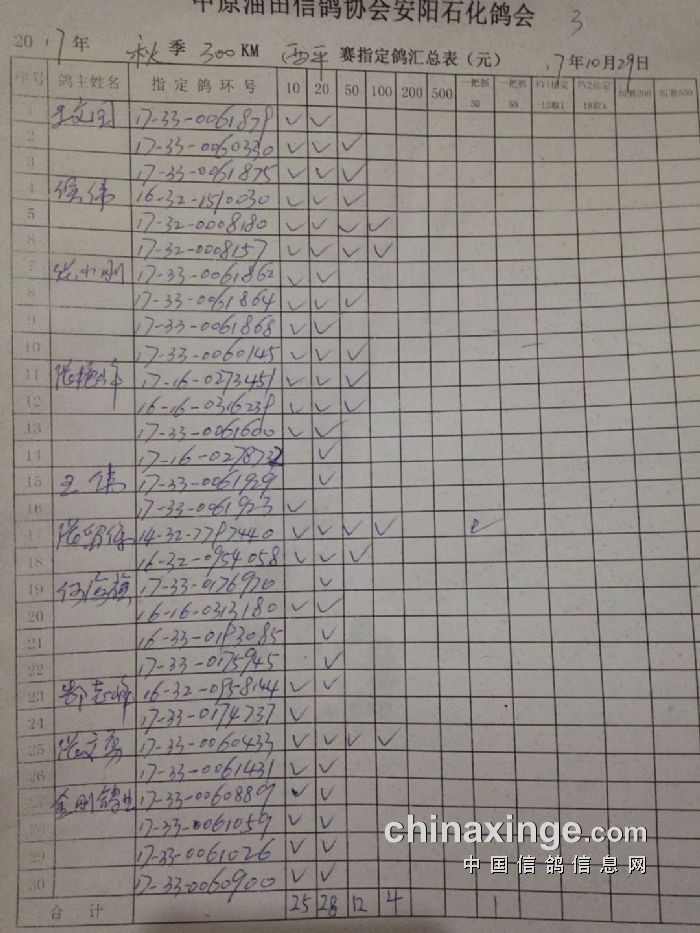 中原油田信鸽协会安阳石化鸽会
3
2017年 秋季 300KM 西平 赛指定鸽汇总表(元) 17年10月29日
序号 鸽主姓名 指定鸽环号 10 20 50 100 200 500 一把抓30 一把抓50
1 王文国 17-33-0061879 ✓ ✓
2 17-33-0060330 ✓ ✓ ✓
3 17-33-0061875 ✓ ✓ ✓
4 侯伟 16-32-1510030 ✓ ✓ ✓
5 17-32-0008180 ✓ ✓ ✓ ✓
6 17-32-0008157 ✓ ✓ ✓ ✓
7 张小刚 17-33-0061862 ✓ ✓
8 17-33-0061864 ✓ ✓ ✓
9 17-33-0061868 ✓ ✓
10 17-33-0060145 ✓ ✓ ✓
11 17-16-0273451 ✓ ✓ ✓
12 16-16-0316239 ✓ ✓ ✓
13 17-33-0061600 ✓ ✓
14 17-16-0278732 ✓
15 王伟 17-33-0061929 ✓
16 17-33-0061923 ✓
17 14-32-7797440 ✓ ✓ ✓ ✓ ✓
18 16-32-0954058 ✓ ✓ ✓
19 17-33-0176970 ✓
20 16-16-0313180 ✓ ✓
21 16-33-0193085 ✓
22 17-33-0175945 ✓
23 16-32-0958144 ✓ ✓
24 17-33-0174737 ✓
25 张文勇 17-33-0060433 ✓ ✓ ✓ ✓
26 17-33-0061431 ✓ ✓
27 金刚鸽业 17-33-0060889 ✓ ✓
28 17-33-0061059 ✓ ✓
29 17-33-0061026 ✓ ✓
30 17-33-0060900 ✓ ✓
合计 25 28 12 4 1
chinaxinge.com
中国信鸽信息网